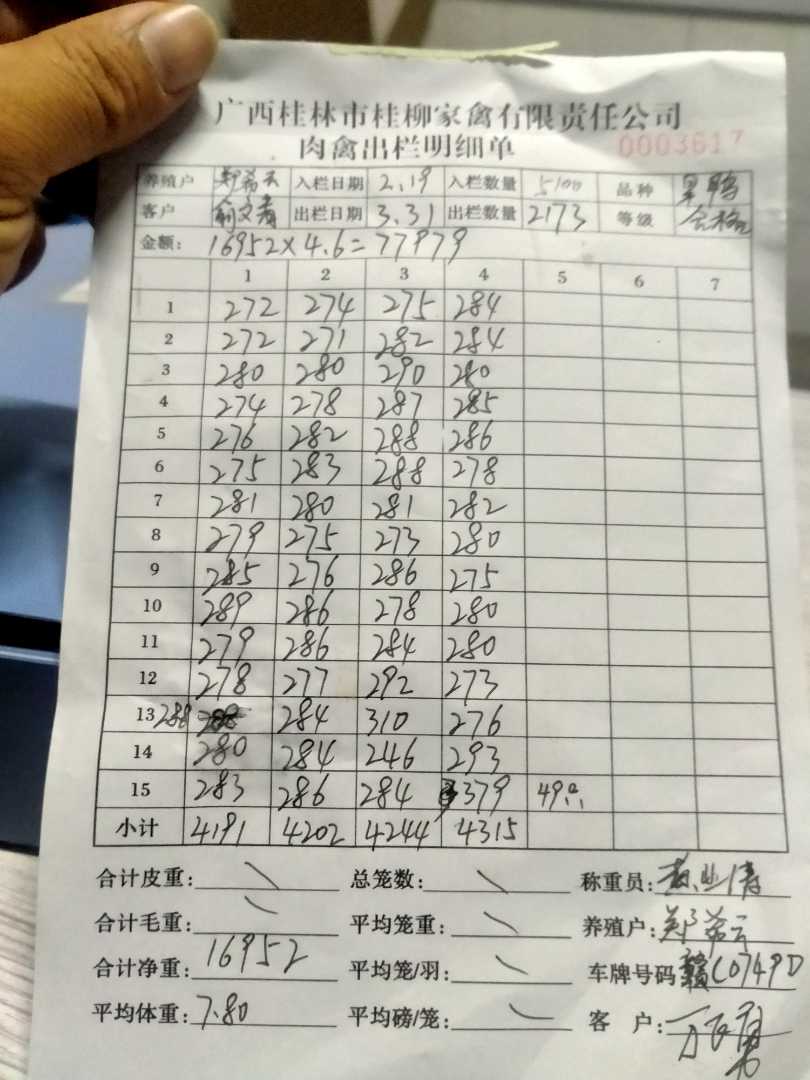 广西桂林市桂柳家禽有限责任公司
肉禽出栏明细单 0003617
养殖户 郑希云 入栏日期 2.19 入栏数量 5100 品种 鸭
客户 俞文青 出栏日期 3.31 出栏数量 2173 等级 合格
金额: 16952×4.6=77979
1 2 3 4 5 6 7
1 272 274 275 284
2 272 271 282 284
3 280 280 290 280
4 274 278 287 285
5 276 282 288 286
6 275 283 288 278
7 281 280 281 282
8 279 275 273 280
9 285 276 286 275
10 289 286 278 280
11 279 286 284 280
12 278 277 292 273
13 288 284 310 276
14 280 284 246 293
15 283 286 284 379 49
小计 4191 4202 4244 4315
合计皮重: 总笼数: 称重员: 黄业清
合计毛重: 平均笼重: 养殖户: 郑希云
合计净重: 16952 平均笼/羽: 车牌号码 赣C0749D
平均体重: 7.80 平均磅/笼: 客 户: